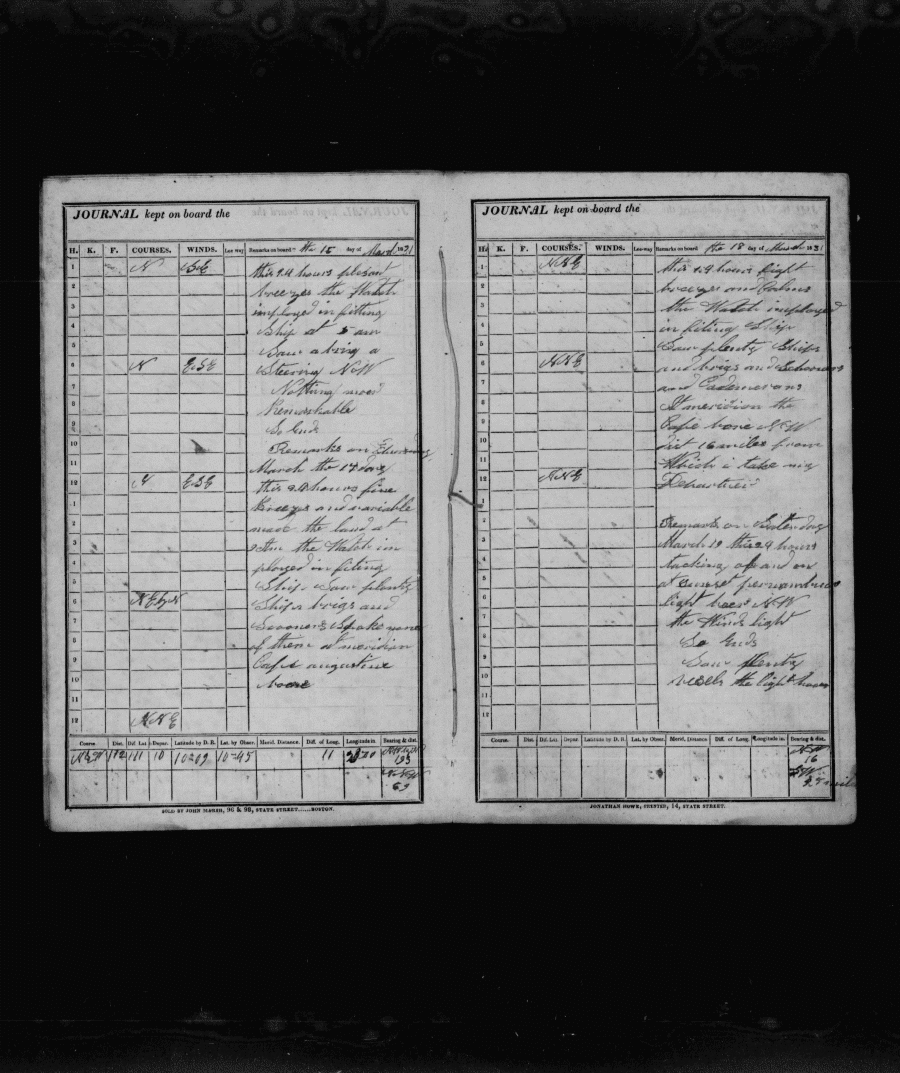 JOURNAL kept on board the
H. K. F. COURSES. WINDS. Lee way Remarks on board the 15 day of March 1831
1 N SE this 24 hours plesant
2 breezes the Watch
3 imployed in fitting
4 Ship at 5 am
5 Saw a brig a
6 N ESE Steering NW
7 Nothing more
8 Remarkable
9 So Ends
10 Remarks on
11 March the 17 day
12 N ESE this 24 hours fine
1 Breezes and variable
2 made the land at
3 Am the Watch im
4 ployed in fiting
5 Ship Saw plenty
6 NEbyN Ships brigs and
7 Scooners Spoke none
8 of them at meridian
9 Cape augustine
10 bore
11
12 NNE
Course. Dist. Dif. Lat. Depar. Latitude by D. R. Lat. by Obser. Merid. Distance. Diff. of Long. Longitude in. Bearing & dist.
112 111 10 10=09 10=45 11
193
NNW
69
SOLD BY JOHN MARSH, 96 & 98, STATE STREET......BOSTON.
JOURNAL kept on board the
H. K. F. COURSES. WINDS. Lee-way Remarks on board the 18 day of March 1831
1 NNE this 24 hours light
2 breezes and Calms
3 the Watch imployed
4 in fiting Ship
5 Saw plenty Ships
6 NNE and brigs and Schooners
7 and Cademerons
8 At meridion the
9 Cape bore NW
10 dist 16 miles from
11 Which i take my
12 NNE Departure
1
2 Remarks on
3 March 19 this 24 hours
4 tacking of and on
5 at sunset pernambuco
6 light bore NW
7 the Winds light
8 So Ends
9 Saw plenty
10 vesels the light
11
12
Course. Dist. Dif. Lat. Depar. Latitude by D. R. Lat. by Obser. Merid. Distance. Dif. of Long. Longitude in. Bearing & dist.
NW
16
JONATHAN HOWE, PRINTER, 14, STATE STREET.